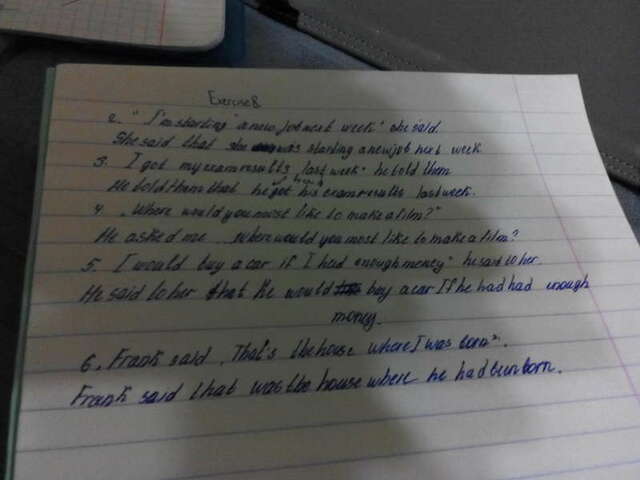 Exercise 8
2. "I'm starting a new job next week" she said.
She said that she was starting a new job next week
3. I got my exam results last week" he told them
He told them that he got his exam results last week.
4. „Where would you most like to make a film?"
He asked me where would you most like to make a film?
5. I would buy a car if I had enough money" he said to her.
He said to her that he would buy a car If he had had enough
money.
6. Frank said, That's the house where I was born".
Frank said that was the house where he had been born.